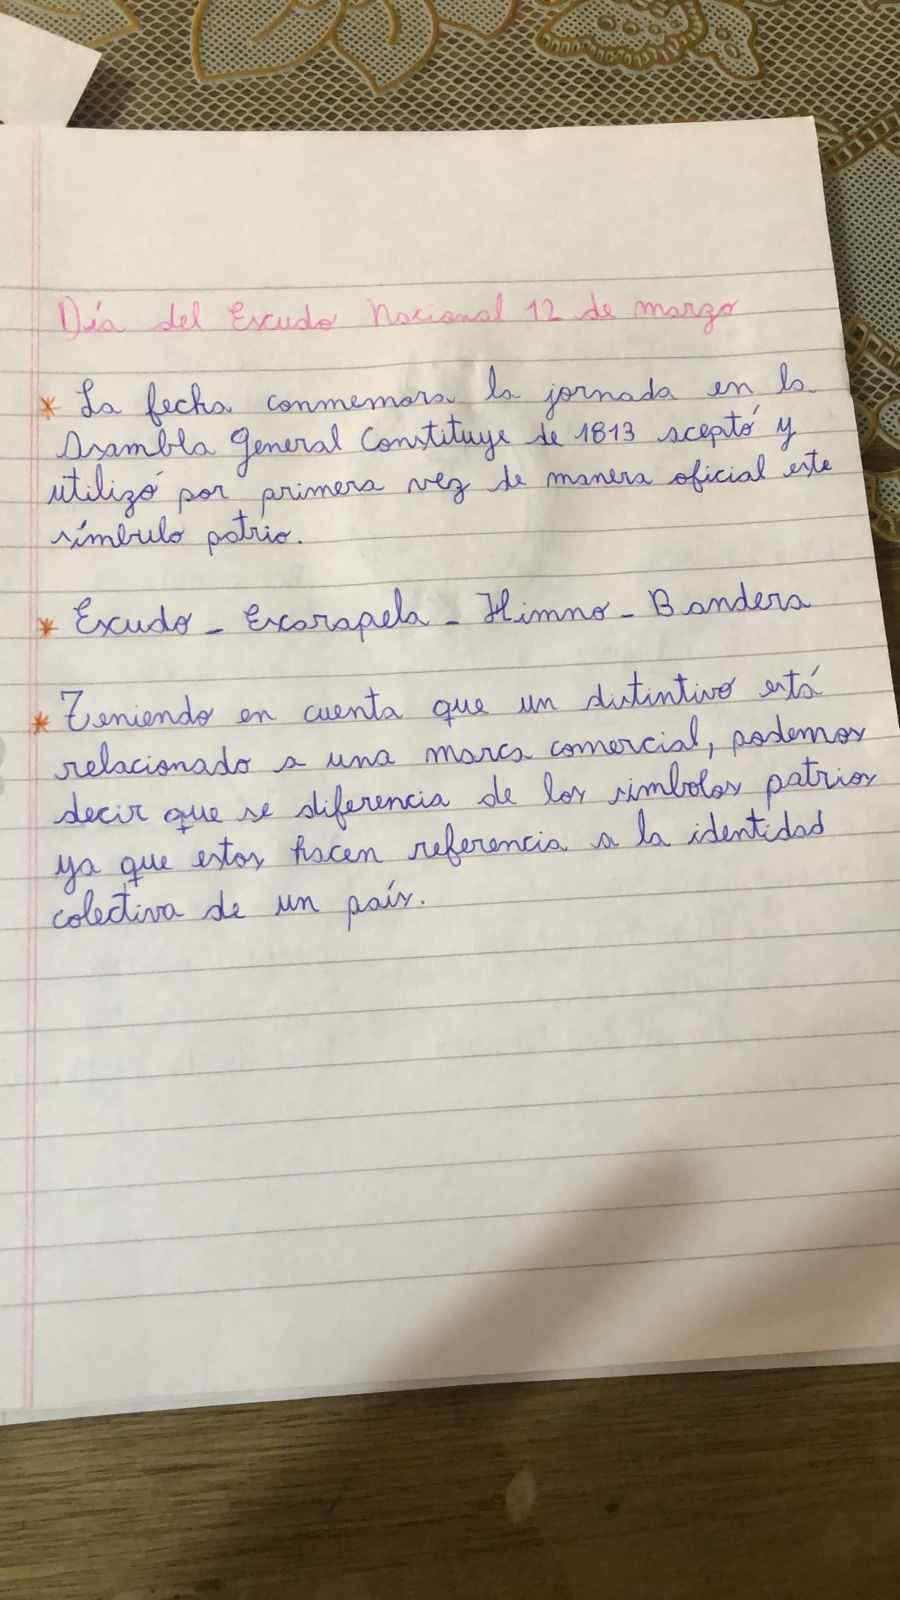 Día del Escudo Nacional 12 de marzo
* La fecha conmemora la jornada en la
Asambla General Constituye de 1813 aceptó y
utilizó por primera vez de manera oficial este
símbulo patrio.
* Escudo - Escarapela - Himno - Bandera
* Teniendo en cuenta que un distintivo está
relacionado a una marca comercial, podemos
decir que se diferencia de los simbolos patrios
ya que estos hacen referencia a la identidad
colectiva de un país.